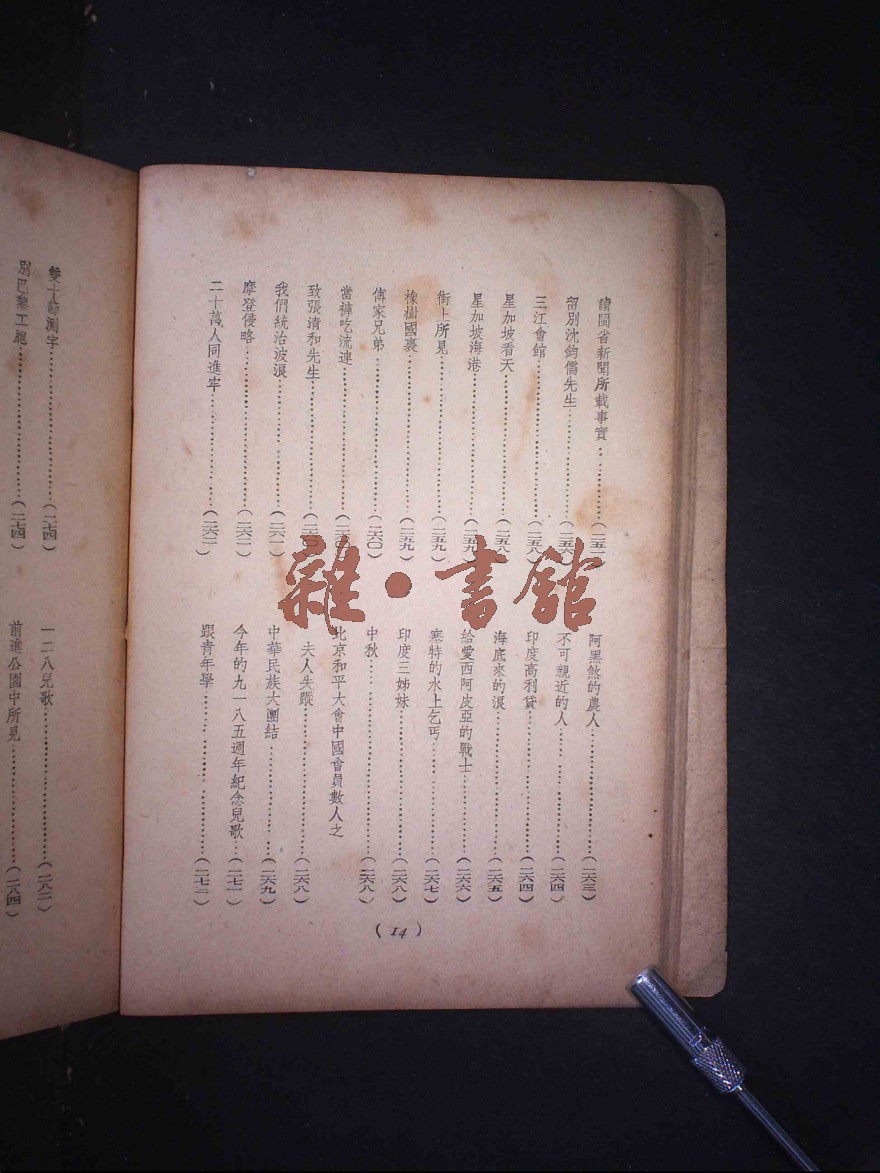 讀閩省新聞所載事實……………(二五一
留別沈鈞儒先生……………(二五六)
三江會館……………(二五八)
星加坡看天……………(二五八)
星加坡海港……………(二五九)
街上所見……………(二五九)
橡樹國裏……………(二五九)
傅家兄弟……………(二六〇)
當褲吃流連……………(二六〇)
致張清和先生……………(二六〇
我們統治波浪……………(二六一)
摩登侵略……………(二六二)
二十萬人同進牢……………(二六二)
阿黑煞的農人……………(二六三)
不可親近的人……………(二六四)
印度高利貸……………(二六四)
海底來的浪……………(二六五)
給愛西阿皮亞的戰士……………(二六六)
塞特的水上乞丐……………(二六七)
印度三姊妹……………(二六八)
中秋……………(二六八)
北京和平大會中國會員數人之
夫人失蹤……………(二六八)
中華民族大團結……………(二六九)
今年的九一八五週年紀念兒歌……………(二七一)
跟青年學……………(二七二)
(14)
雙十節測字……………(二七四)
別巴黎工廠……………(二七四)
一二八兒歌……………(二八二)
前進公園中所見……………(二八四)
雜·書館